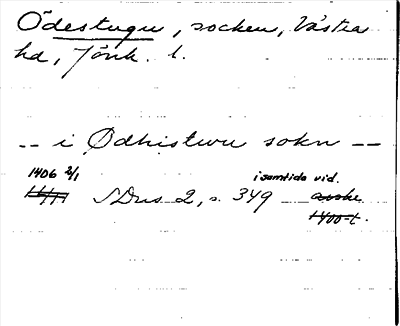 Ödestugu, socken, Västra
hd, Jönk. l.
-- i Ødhistwu sokn --
1406 2/1 i samtida vid.
SDns 2, s. 349 avskr.
1400-t.